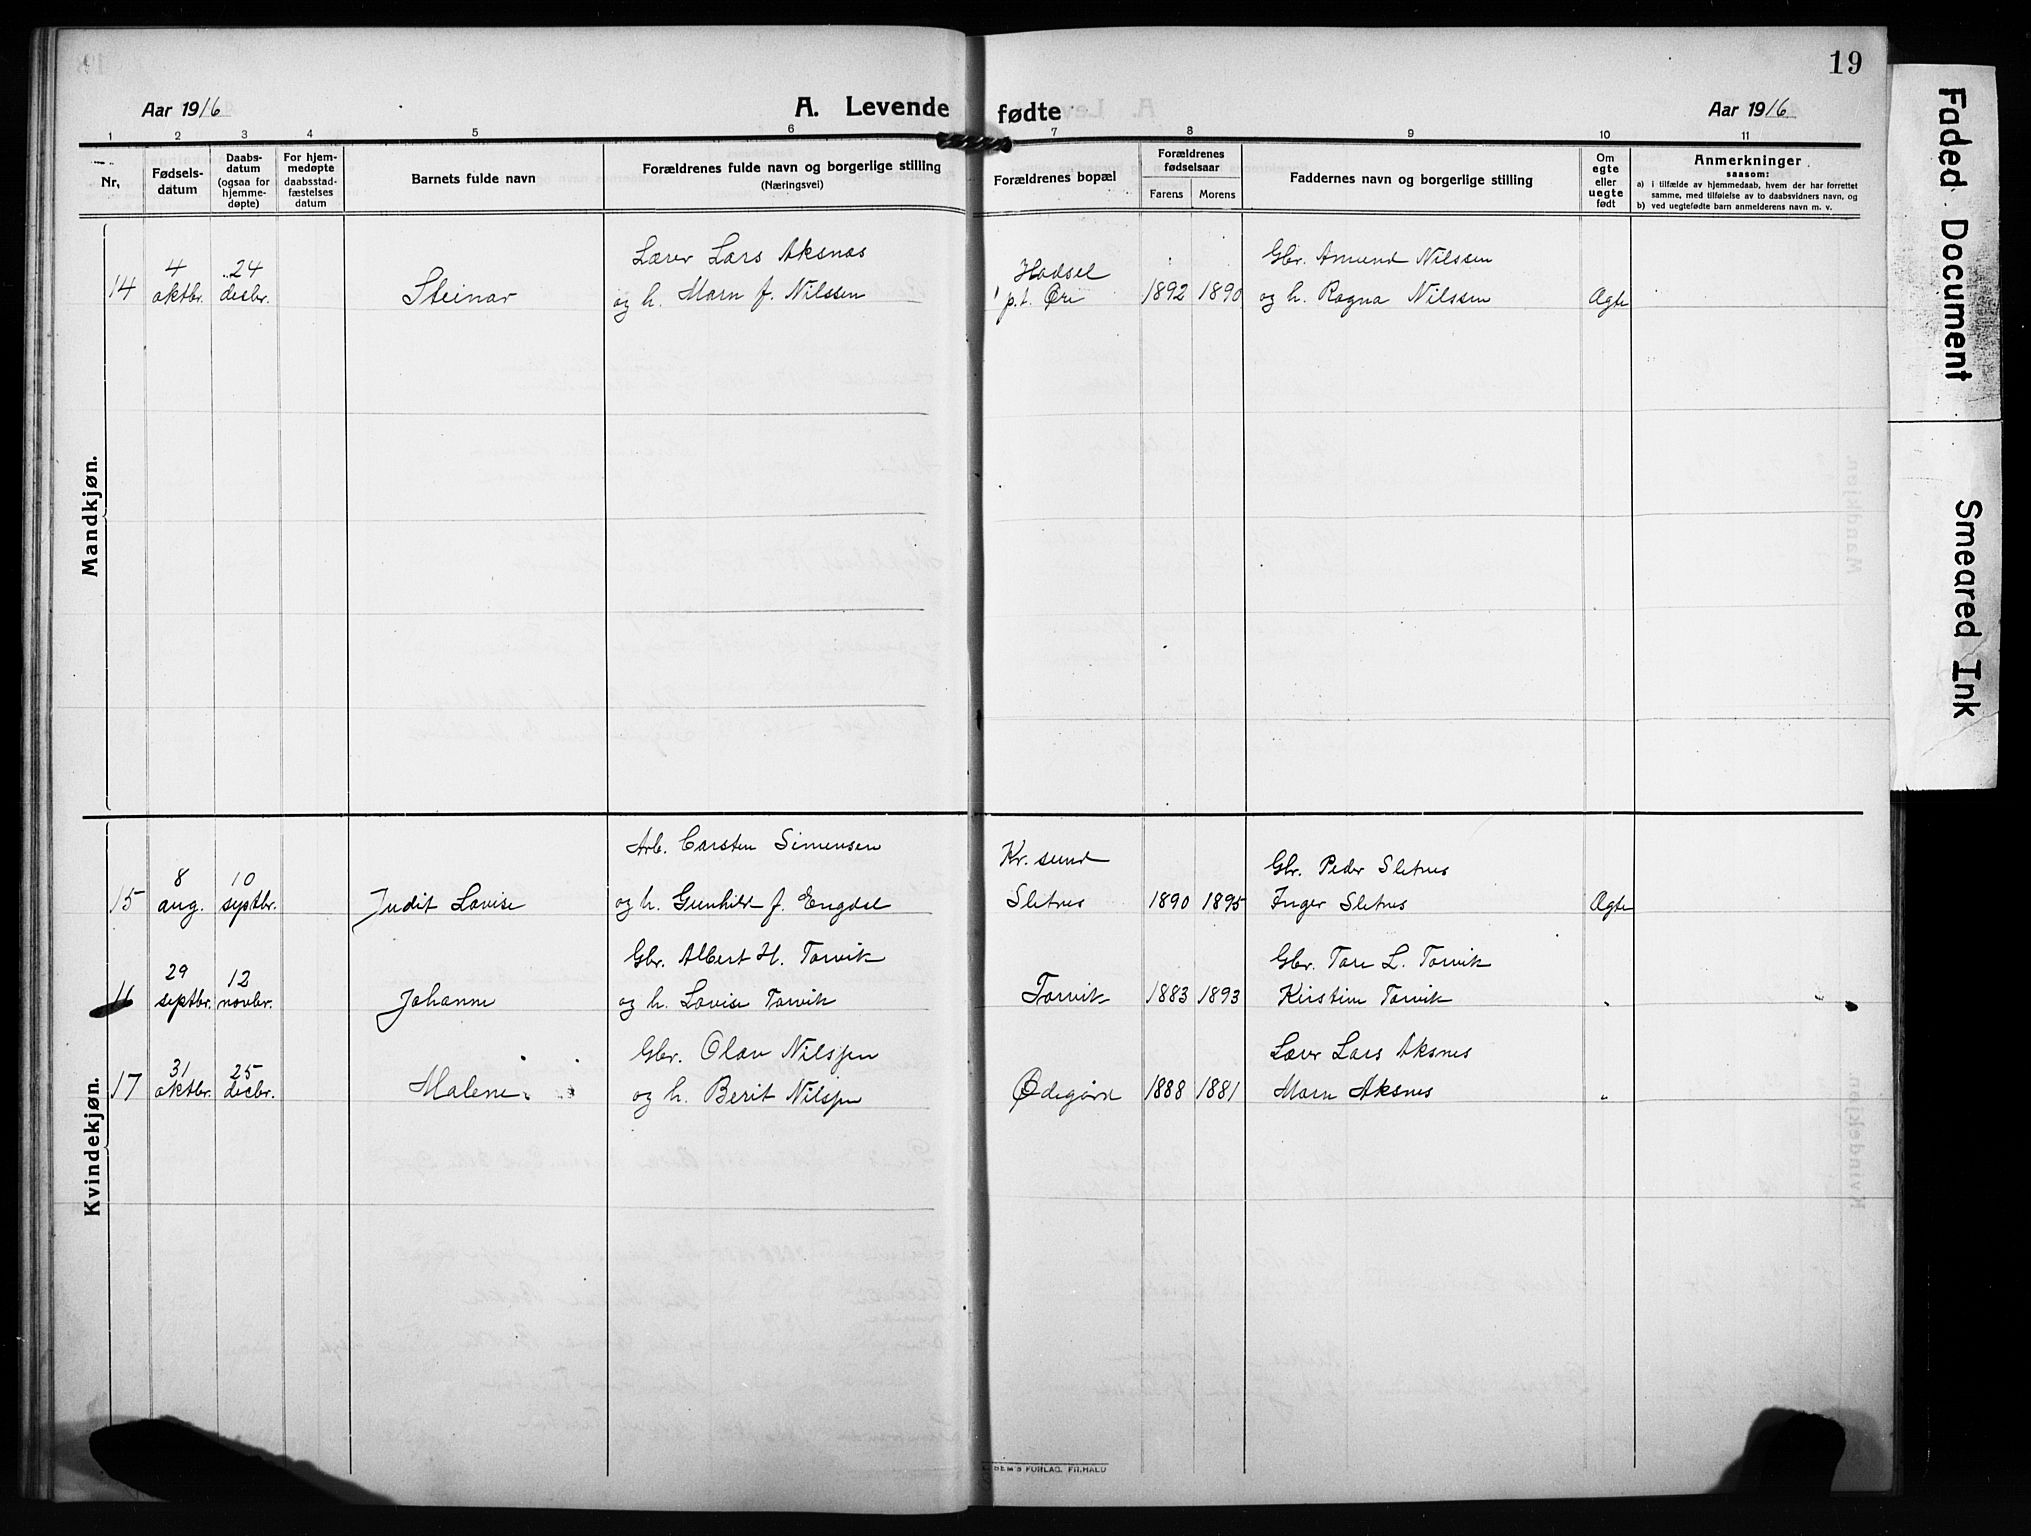 19
Aar 1916
A. Levende fødte
Aar 1916
1 2 3 4 5 6 7 8 9 10 11
Nr.
Fødsels-
datum
Daabs-
datum
(ogsaa for
hjemme-
døpte)
For hjem-
medøpte
daabsstad-
fæstelses
datum
Barnets fulde navn
Forældrenes fulde navn og borgerlige stilling
(Næringsvei)
Forældrenes bopæl
Forældrenes
fødselsaar
Farens Morens
Faddernes navn og borgerlige stilling
Om
egte
eller
uegte
født
Anmerkninger
saasom:
a) i tilfælde av hjemmedaab, hvem der har forrettet
samme, med tilføielse av to daabsvidners navn, og
b) ved uegtefødte barn anmelderens navn m. v.
Mandkjøn.
14
4
oktbr.
24
decbr.
Steinar
Lærer Lars Aksnes
og h. Marn f. Nilssen
Hadsel
p.t. Øre
1892 1890
Gbr. Amund Nilssen
og h. Ragna Nilssen
Ægte
Kvindekjøn.
15
8
aug.
10
septbr.
Judit Lovise
Arb. Carsten Simensen
og h. Gunhild f. Engdal
Kr. sund
Sletnes
1890 1895
Gbr. Peder Sletnes
Inger Sletnes
Ægte
16
29
septbr.
12
novbr.
Johanne
Gbr. Albert H. Torvik
og h. Lovise Torvik
Torvik
1883 1893
Gbr. Tore L. Torvik
Kirstine Torvik
"
17
31
oktbr.
25
decbr.
Malene
Gbr. Olav Nilssen
og h. Berit Nilssen
Ødegård
1888 1881
Lærer Lars Aksnes
Marn Aksnes
"
FORLAG. FR.HALD
Faded Document
Smeared Ink